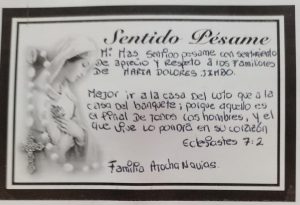 Sentido Pésame
Mi Mas sentido pesame con sentimiento
de aprecio y Respeto a los Familiares
DE MARIA DOLORES JIMBO.
Mejor ir a la casa del luto que a la
casa del banquete; porque aquello es
el final de todos los hombres, y el
que vive lo pondrá en su corazón
Eclesiastes 7:2
Familia Atocha Navias.